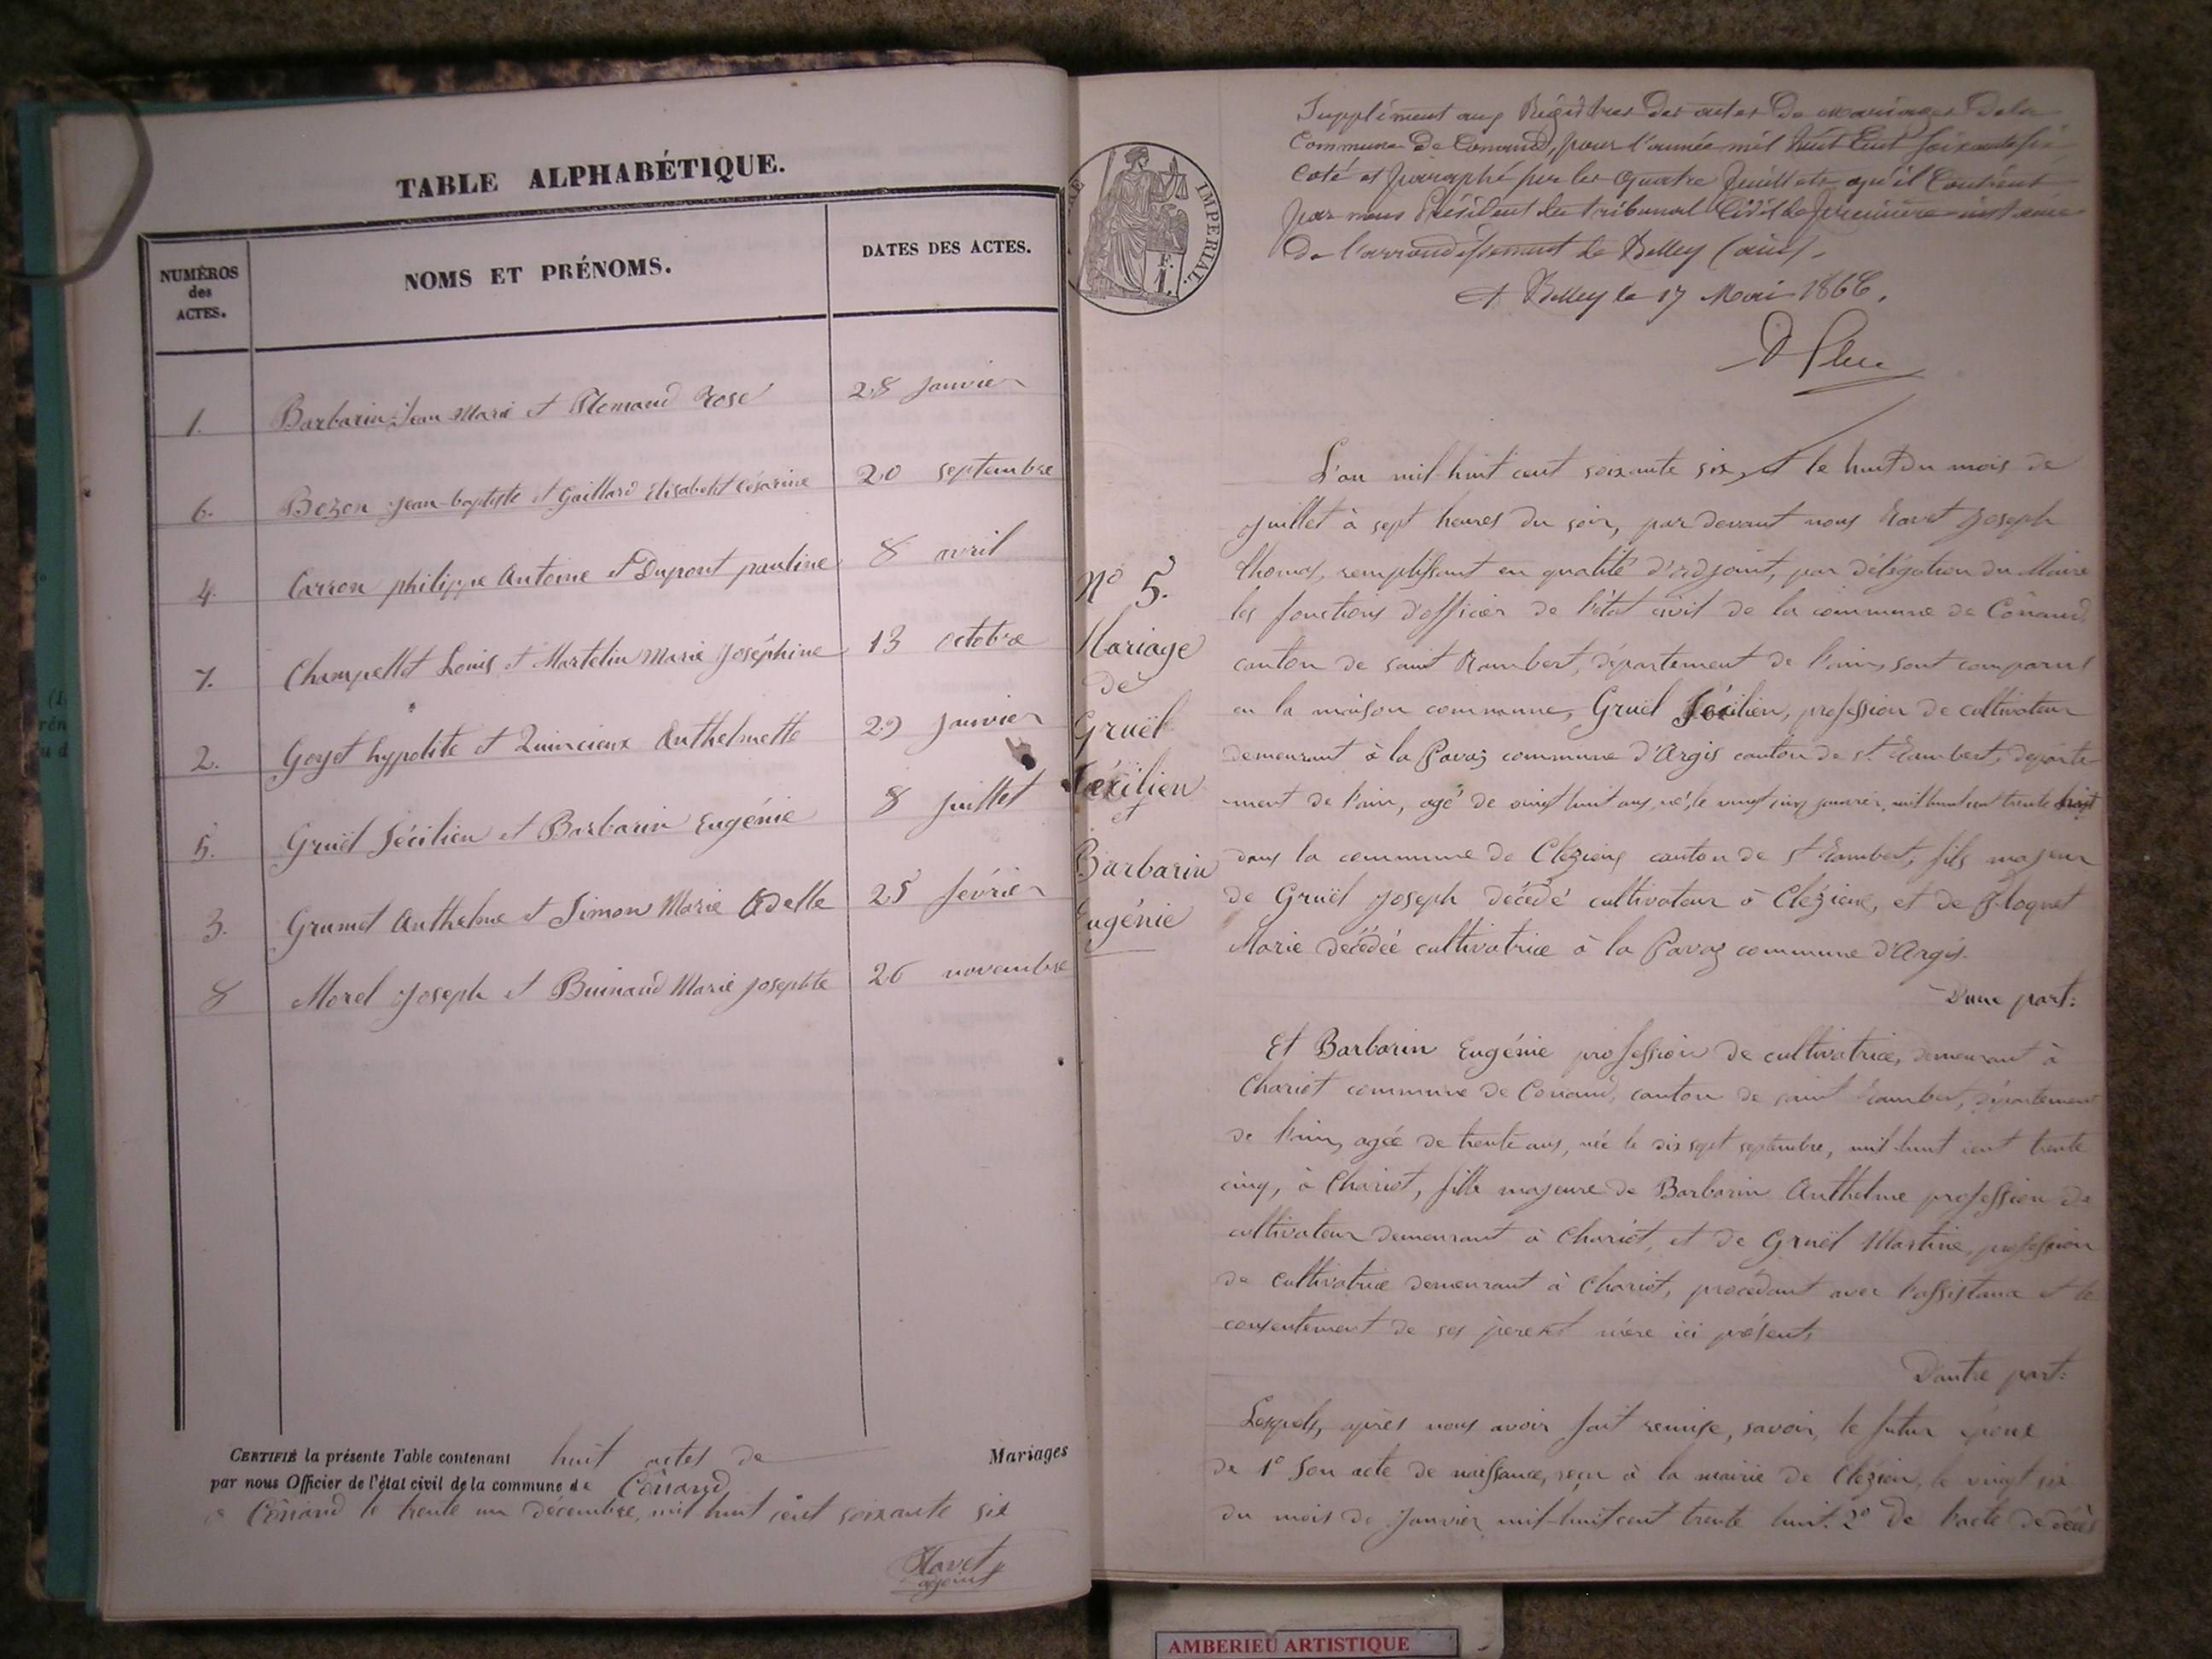 TABLE ALPHABÉTIQUE.
NUMÉROS des ACTES.
NOMS ET PRÉNOMS.
DATES DES ACTES.
1. Barbarin Jean Marie et Plomand Rose 28 janvier
6. Bozon Jean-baptiste et Gaillard Elisabeht Césarine 20 septembre
4. Carron philippe Antoine et Dupont pauline 8 avril
7. Champellet Louis et Martelin Marie Joséphine 13 octobre
2. Goyet hypolite et Quincieux Anthelmette 29 janvier
5. Gruël Sécilien et Barbarin Eugénie 8 juillet
3. Grumet Anthelme et Simon Marie Adelle 25 février
8 Morel Joseph et Buinand Marie josephte 26 novembre
CERTIFIÉ la présente Table contenant huit actes de Mariages
par nous Officier de l'état civil de la commune de Cônand
à Cônand le trente un décembre, mil huit cent soixante six
Ravet
adjoint
IMPERIAL.
F.
1.
Supplément aux Régistres des actes de mariages de la
Commune de Conand, pour l'année mil huit cent soixante six
Coté et paraphé sur les quatre feuillets qu'il contient
par nous Président du tribunal Civil de première instance
de l'arrondissement de Belley (ain).
A Belley le 17 Mai 1866.
N° 5.
Mariage
de
Gruël
Sécilien
et
Barbarin
Eugénie
L'an mil huit cent soixante six, et le huit du mois de
juillet à sept heures du soir, par devant nous Ravet Joseph
thomas, remplissant en qualité d'adjoint, par délégation du Maire
les fonctions d'officier de l'état civil de la commune de Cônand,
canton de saint Rambert, département de l'ain, sont comparus
en la maison commune, Gruël Sécilien, profession de cultivateur
demeurant à la Pavaz commune d'Argis canton de st Rambert, départe
-ment de l'ain, agé de vingt huit ans, né, le vingt cinq janvier, mil huit cent trente huit
dans la commune de Clézieux canton de st Rambert, fils majeur
de Gruël Joseph décédé cultivateur à Clézieux, et de Floquet
Marie décédée cultivatrice à la Pavaz commune d'Argis.
D'une part:
Et Barbarin Eugénie profession de cultivatrice, demeurant à
Chariot commune de Conand, canton de saint Rambert, département
de l'ain, agée de trente ans, née le dix sept septembre, mil huit cent trente
cinq, à Chariot, fille majeure de Barbarin Anthelme profession de
cultivateur demeurant à Chariot, et de Gruël Martine, profession
de cultivatrice demeurant à Chariot, procédant avec l'assistance et le
consentement de ses père et mère ici présents,
D'autre part:
Lesquels, après nous avoir fait remise, savoir, le futur époux
de 1° Son acte de naissance, reçu à la mairie de Clézieu, le vingt six
du mois de Janvier mil-huit cent trente huit. 2° De l'acte de décès
AMBERIEU ARTISTIQUE